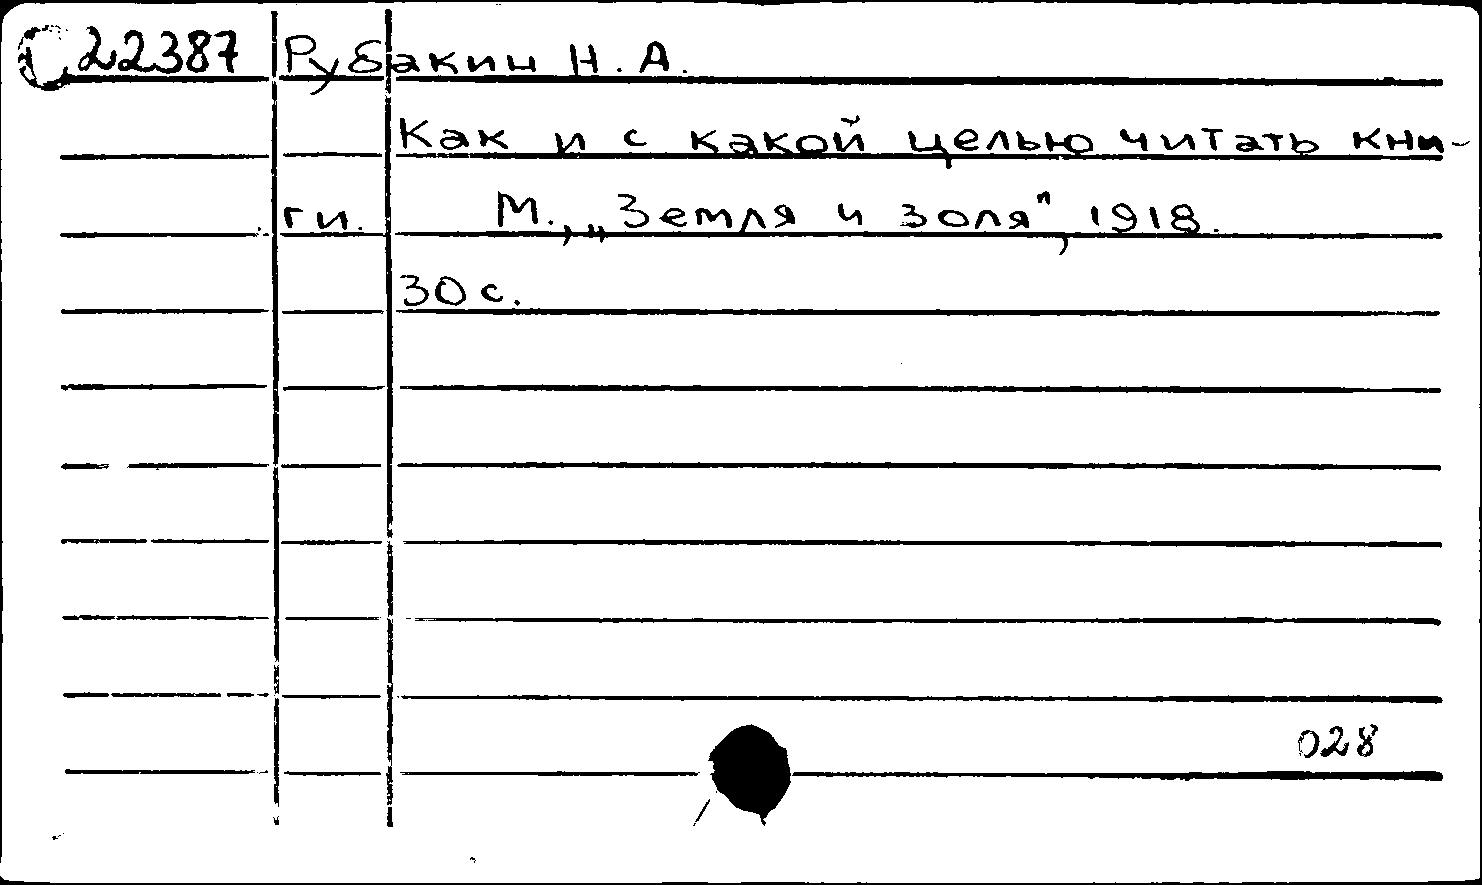 С 22387 Рубакин Н. А.
Как и с какой целью читать кни-
ги. М., „Земля и золя", 1918.
30 с.
028